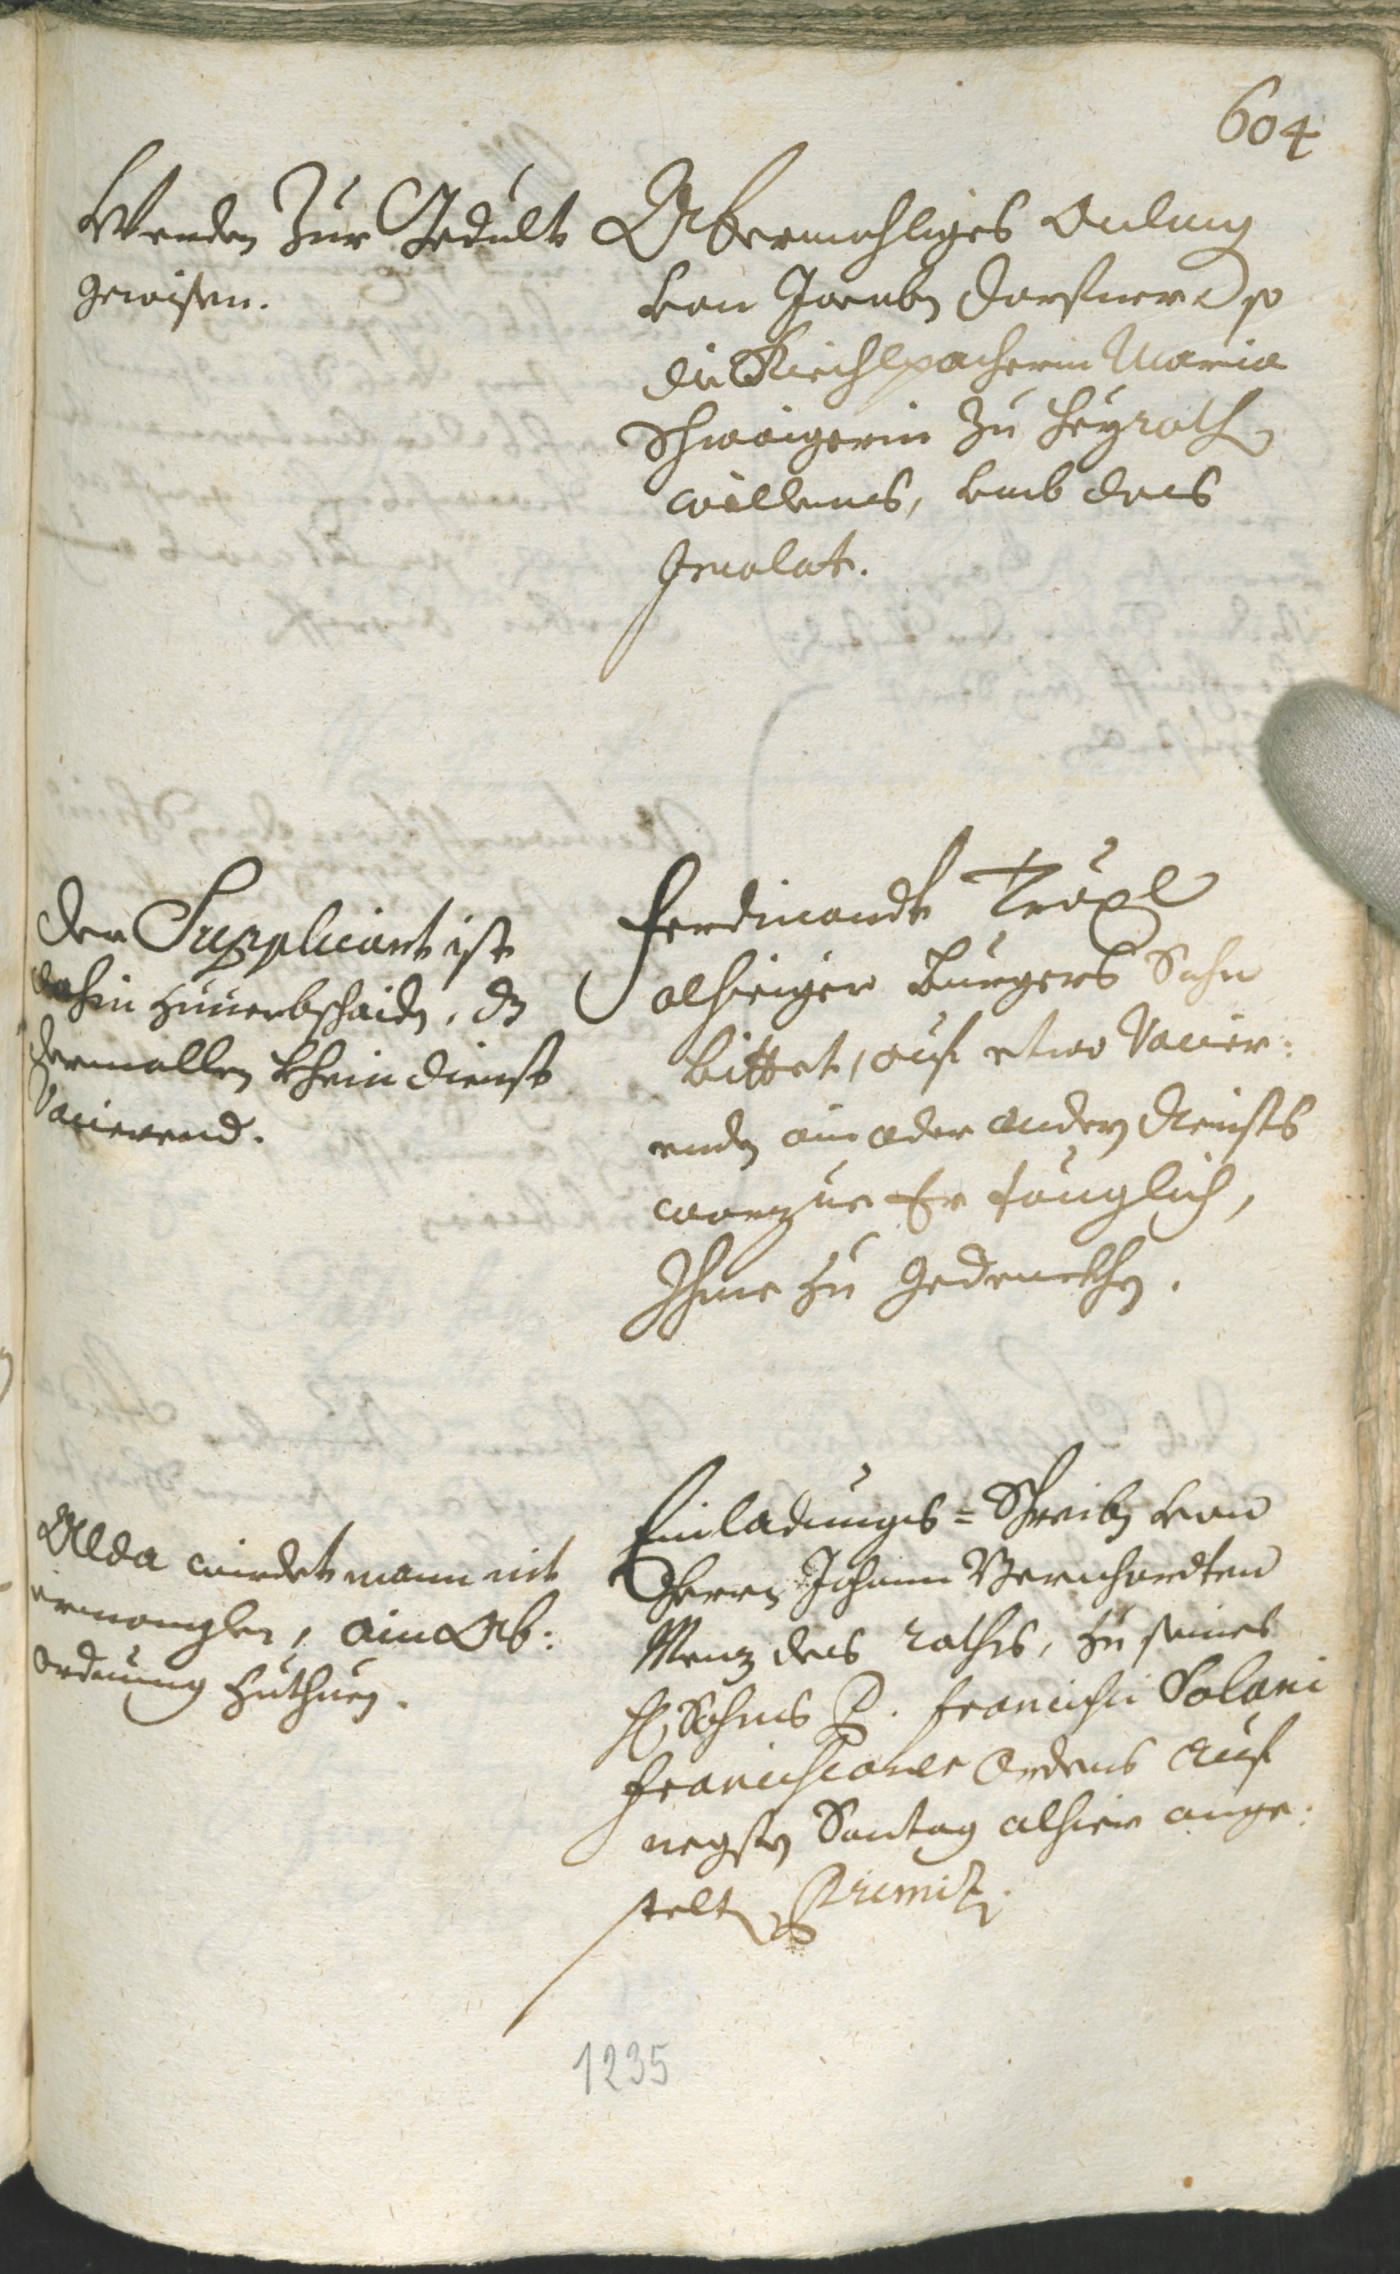 604
Werden zur Gedult
gewisen.
Abermahliges Anlang
von Jacoben Dorfner P
die Kiechlpacherin Maria
Schwaigerin zu Heyrathen
willens, umb das
Incolat.
Der Supplicant ist
dahin zuuerbschaiden, dz
dermallen khein dienst
Vacierend.
Ferdinandt Tröxl
alhieiger Burgers Sohn
bittet, auf etwo Vacier:
enden ain oder andern diensts
warzue Er tauglich,
Ihme zu gedenckhen.
Alda wirdet mann nit
ermanglen, ain Ab:
ordnung zuthuen.
Einladungs=Schreiben von
Herrn Johann Bernhardten
Menz des raths, zu seines
H. Sohns P. Francisci Solani
Franciscaner Ordens auf
negsten Sontag alhier ange:
stelten Primiz.
1235